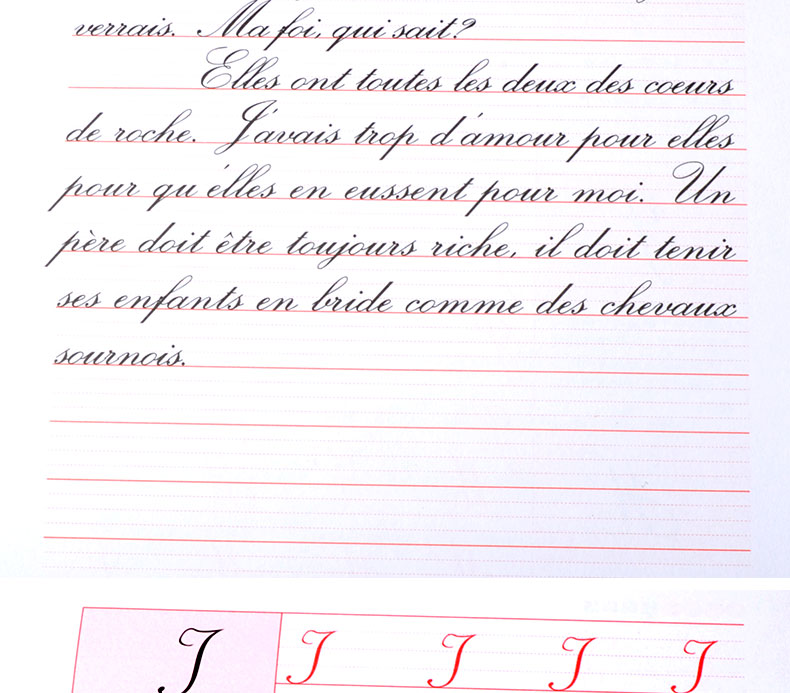 verrais. Ma foi, qui sait?
Elles ont toutes les deux des coeurs
de roche. J'avais trop d'amour pour elles
pour qu'elles en eussent pour moi. Un
père doit être toujours riche, il doit tenir
ses enfants en bride comme des chevaux
sournois.
J J J J J